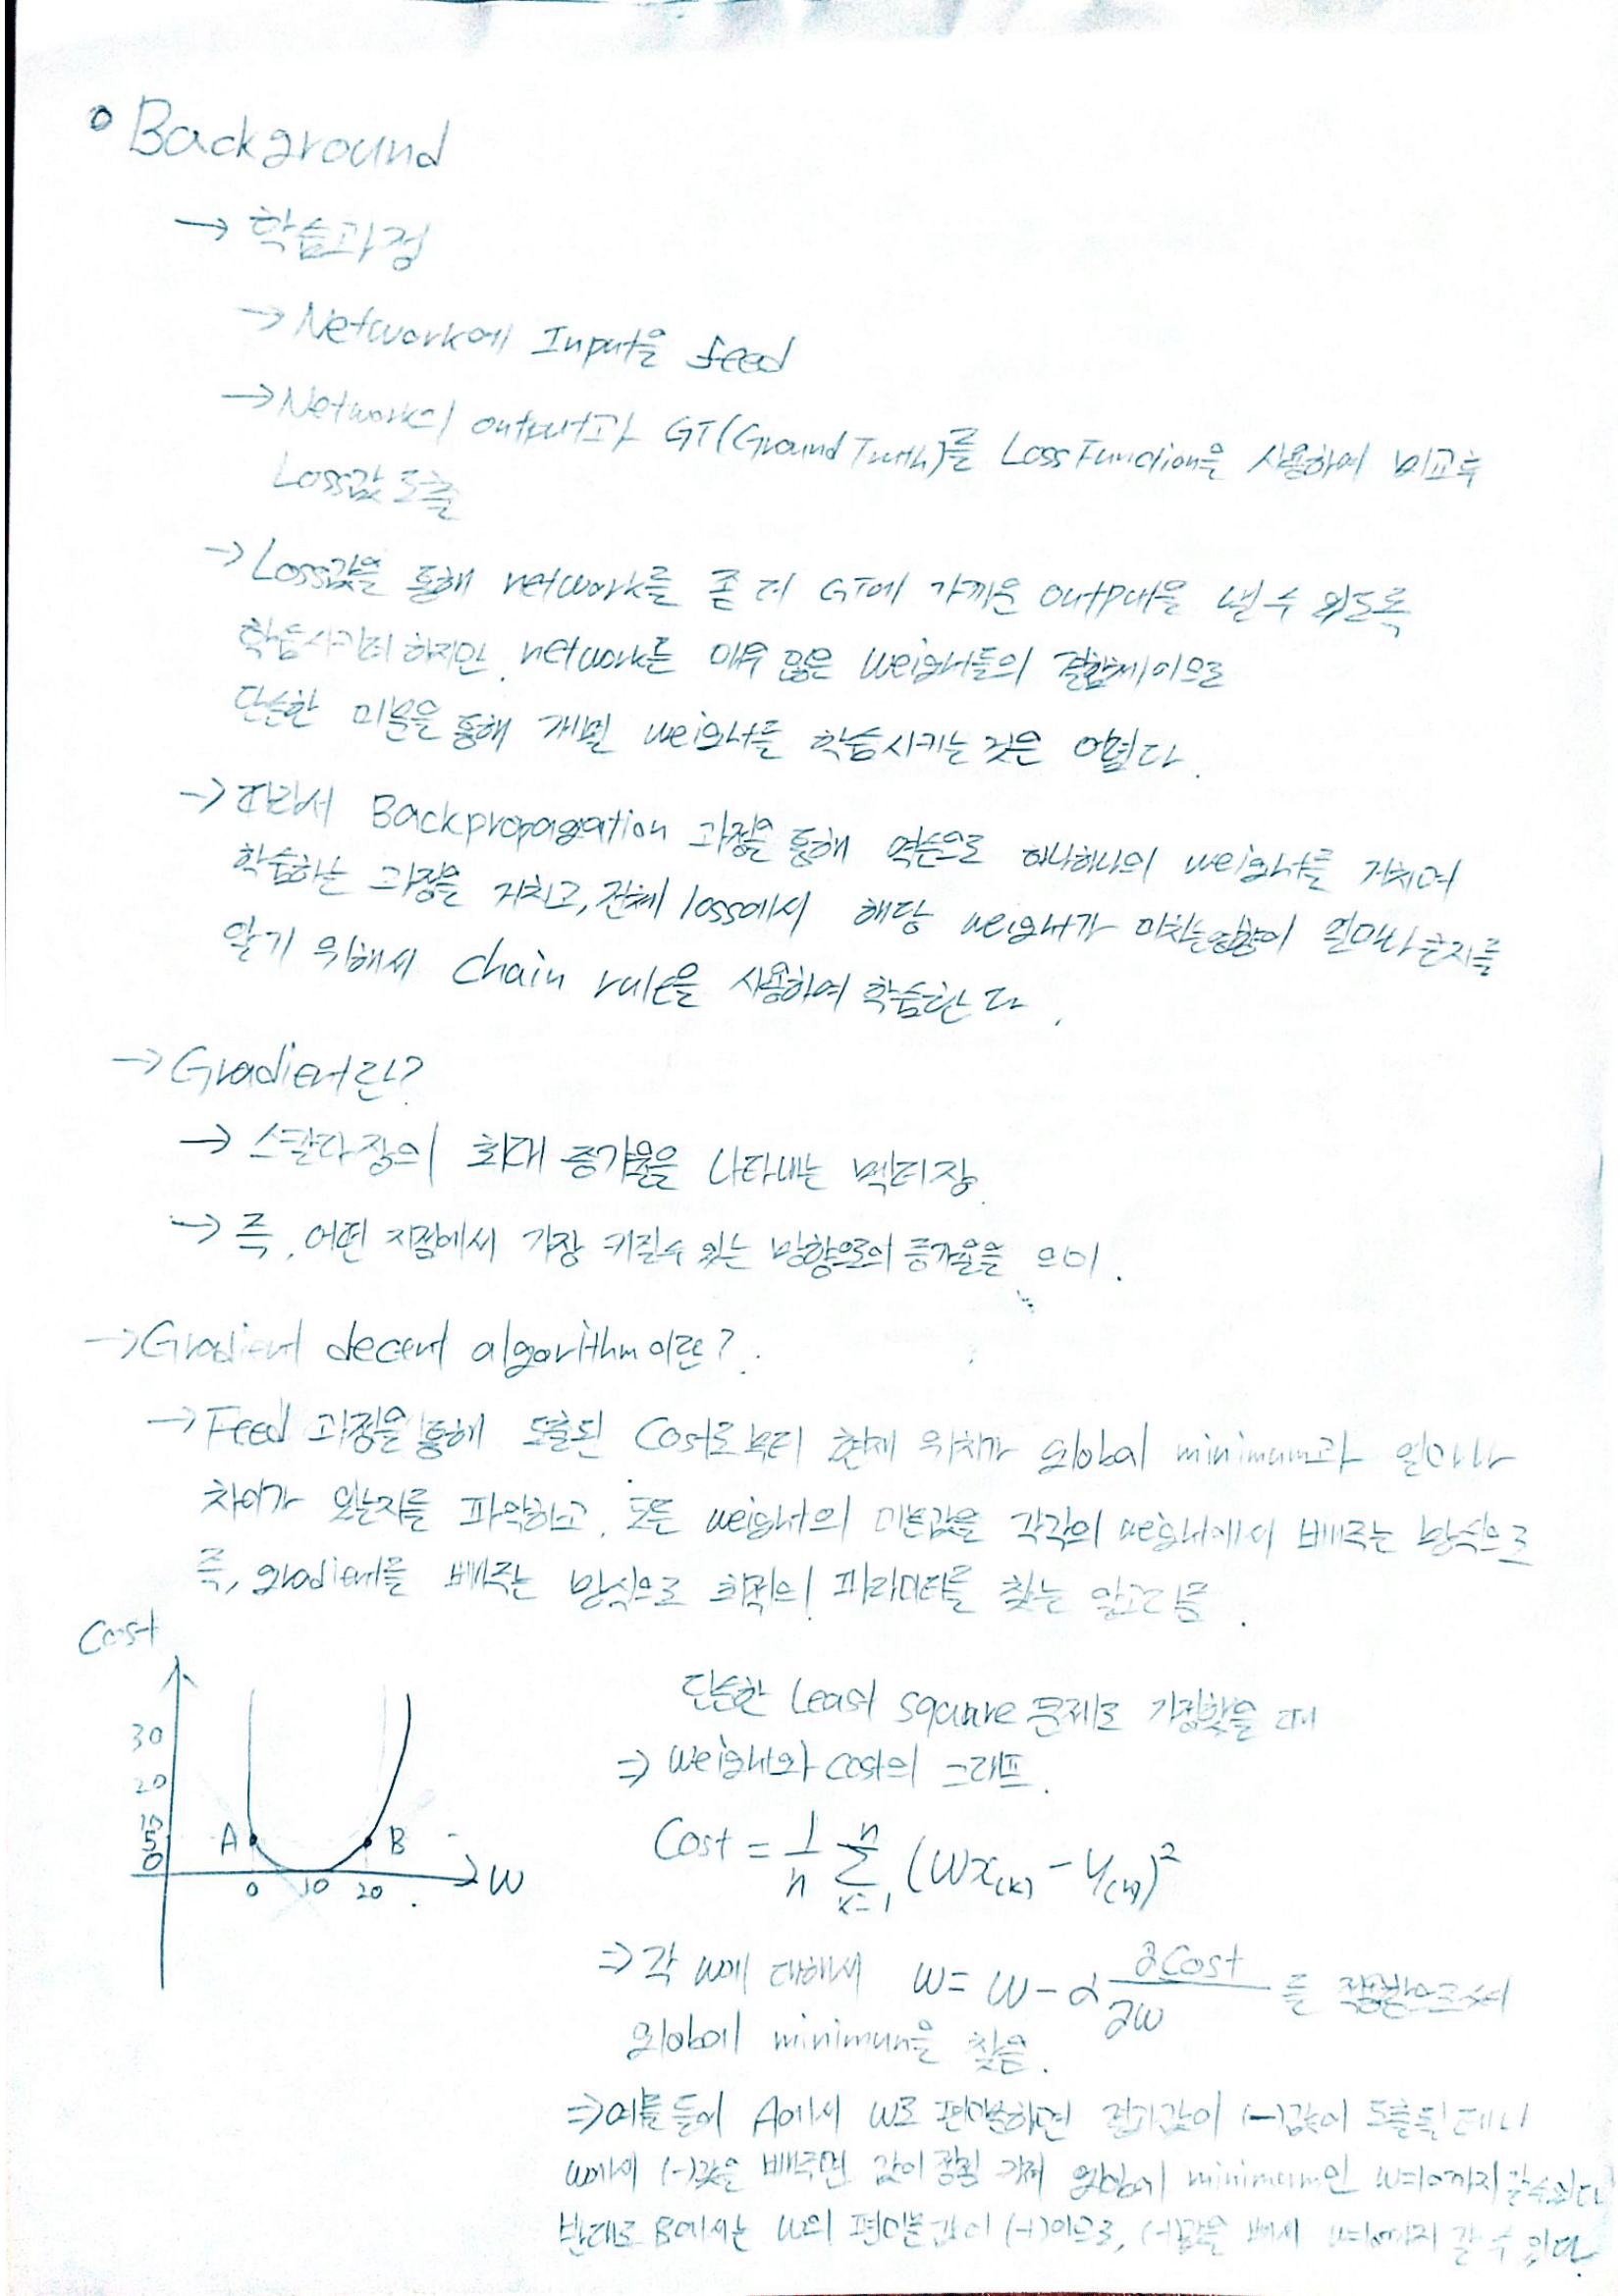 Background
→ 학습과정
→ Network에 Input을 feed
→ Network의 output과 GT(Ground Truth)를 Loss Function을 사용하여 비교후
Loss값 도출
→ Loss값을 통해 network를 좀 더 GT에 가까운 output을 낼 수 있도록
학습시키려 하지만, network는 매우 많은 weight들의 결합체이므로
단순한 미분을 통해 개별 weight를 학습시키는 것은 어렵다.
→ 따라서 Backpropagation 과정을 통해 역순으로 하나하나의 weight를 거치며
학습하는 과정을 거치고, 전체 loss에서 해당 weight가 미치는 영향이 얼마나 큰지를
알기 위해서 chain rule을 사용하여 학습한다.
→ Gradient란?
→ 스칼라장의 최대 증가율을 나타내는 벡터장
→ 즉, 어떤 지점에서 가장 커질수 있는 방향으로의 증가율을 의미.
→ Gradient decent algorithm이란?
→ Feed 과정을 통해 도출된 Cost로부터 현재 위치가 global minimum과 얼마나
차이가 있는지를 파악하고, 모든 weight의 미분값을 각각의 weight에서 빼주는 방식으로
즉, gradient를 빼주는 방식으로 최적의 파라미터를 찾는 알고리즘.
Cost
30
20
10
5
0
A
B
0 10 20
w
단순한 Least square 문제로 가정했을 때
⇒ weight와 cost의 그래프.
Cost = 1/n Σ k=1 n (Wx(k) - y(k))²
⇒ 각 w에 대해서 w = w - α ∂Cost/∂w 를 적용함으로써
global minimum을 찾음.
⇒ 예를 들어 A에서 w로 편미분하면 결과값이 (-)값이 도출될 테니
w에서 (-)값을 빼주면 값이 점점 커져 minimum인 w=10까지 갈수있다
반대로 B에서는 w의 편미분값이 (+)이므로, (+)값을 빼서 w=10까지 갈 수 있다.